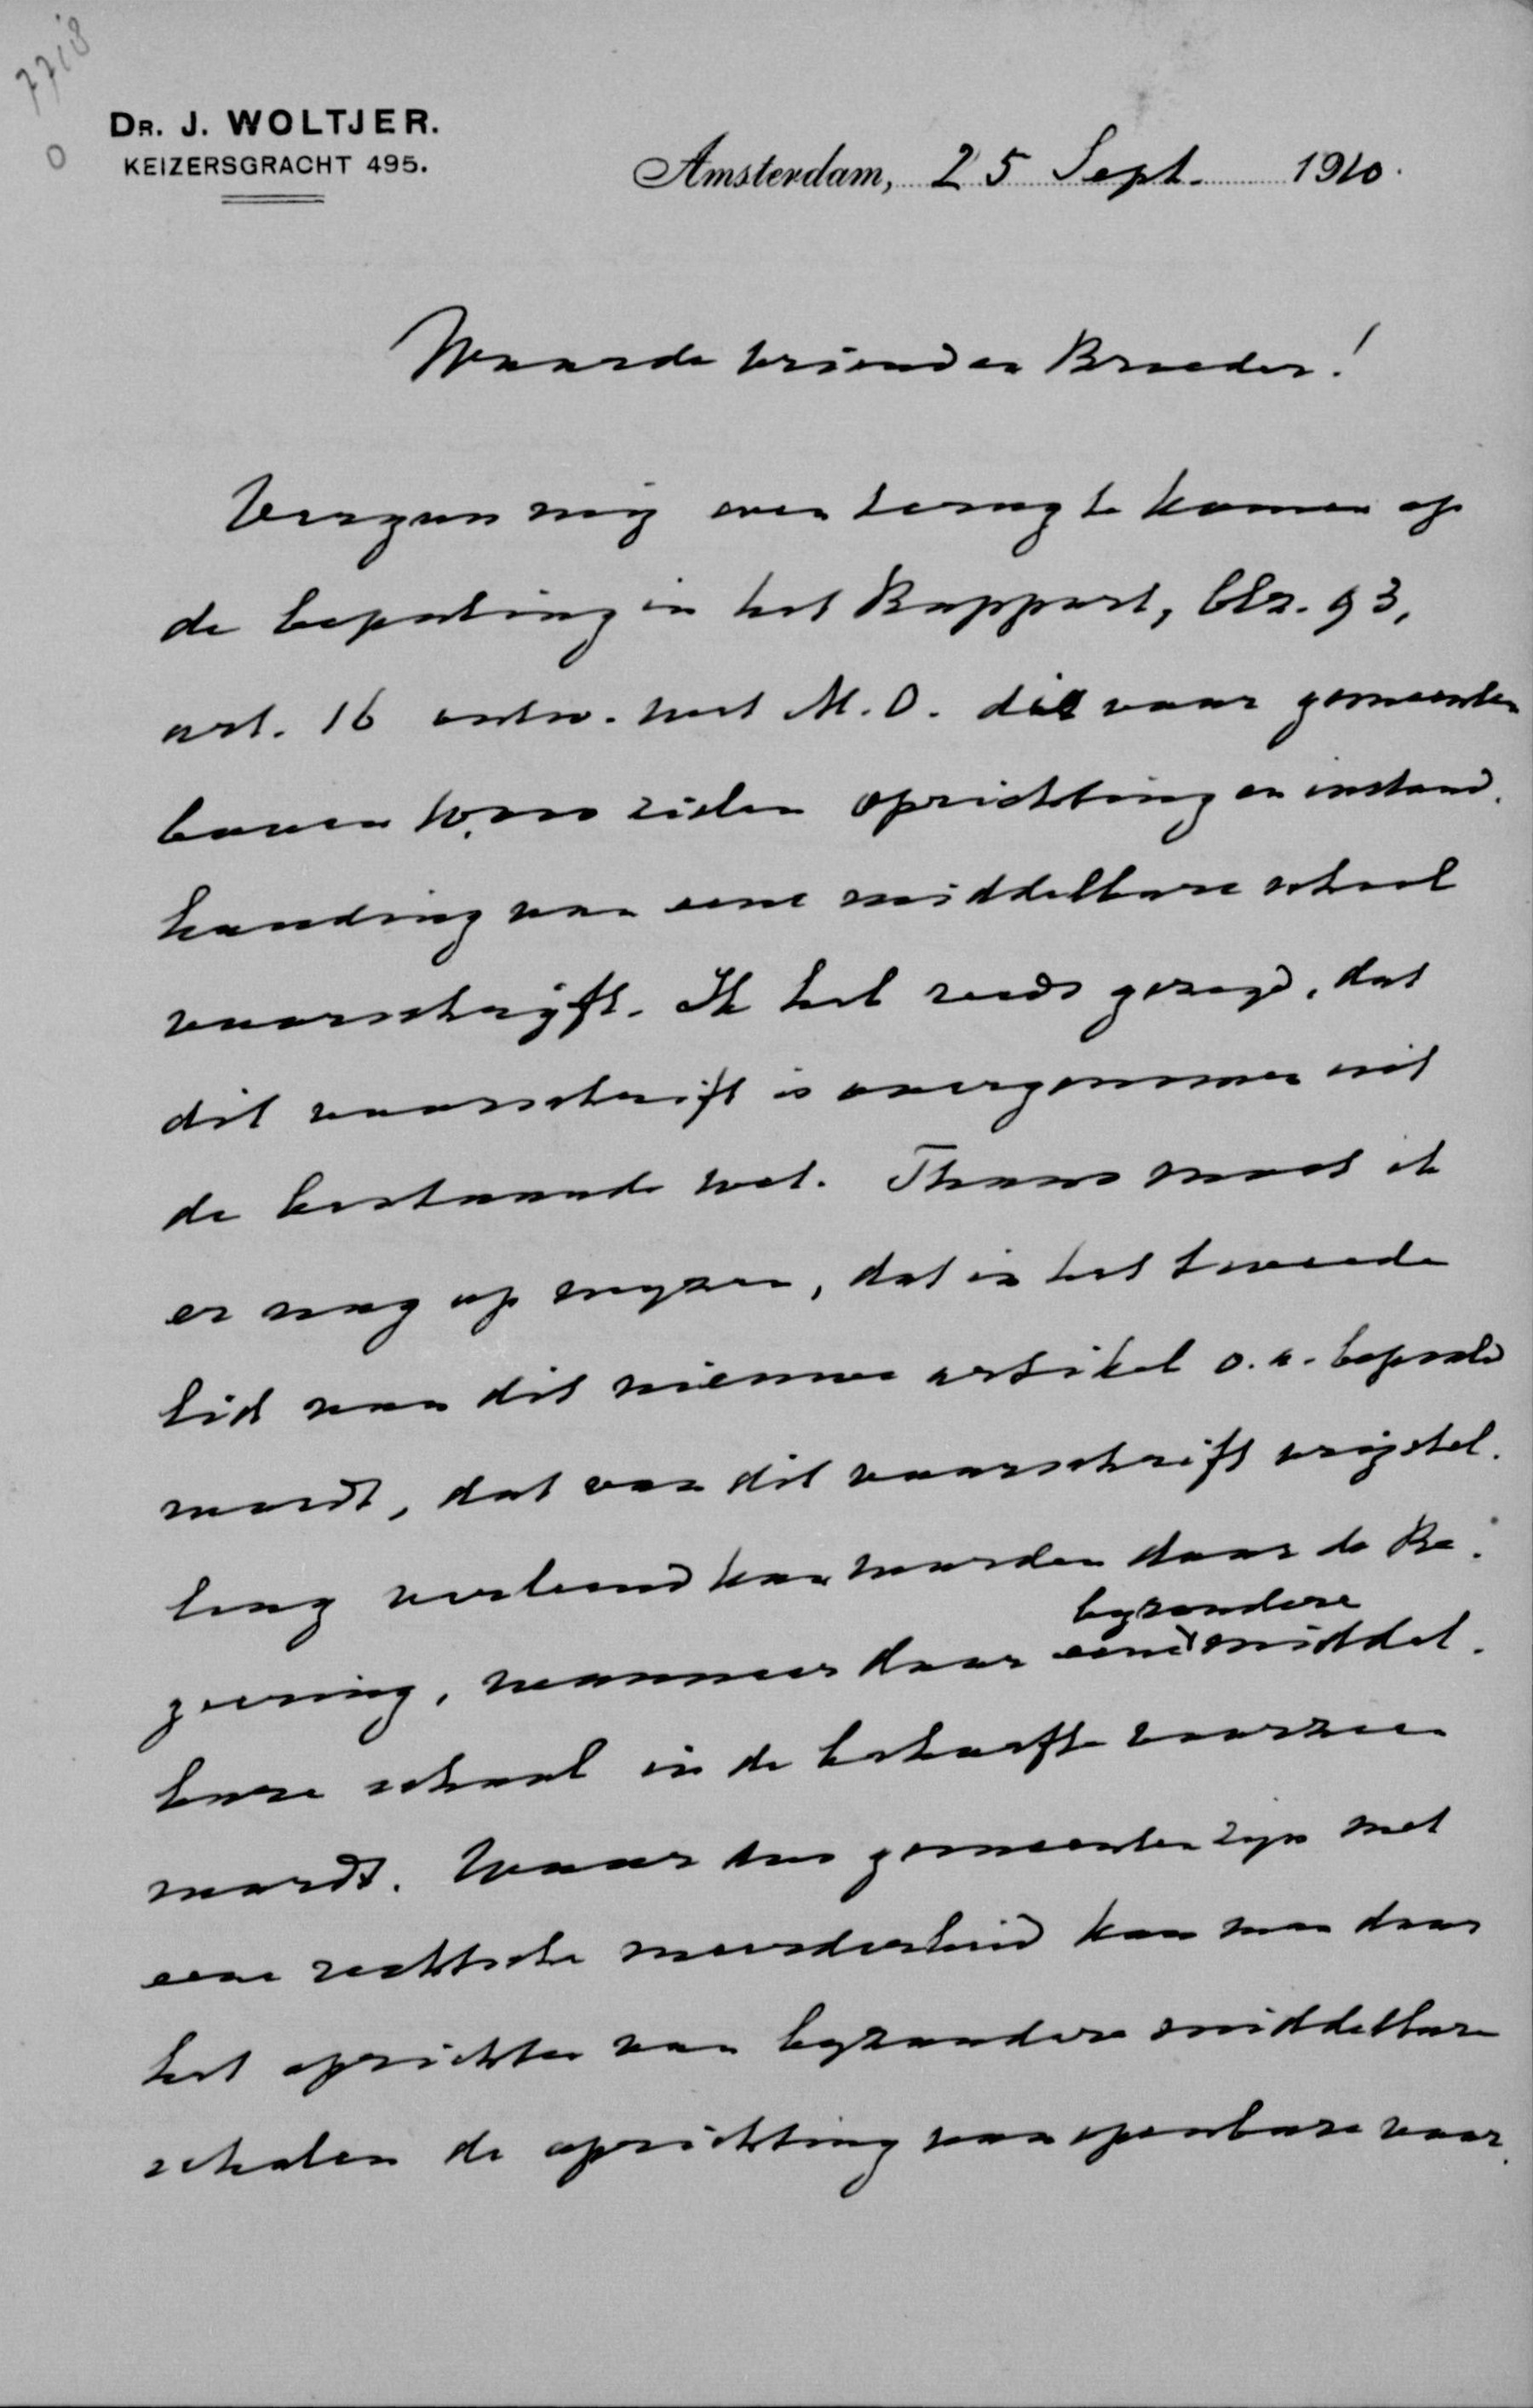 7718
0
DR. J. WOLTJER.
KEIZERSGRACHT 495.
Amsterdam, 25 Sept. 1910.
Waarde Vriend en Broeder!
Vergun mij even terug te komen op
de bepaling in het Rapport, blz. 93,
art. 16 ontw. wet M.O. die voor gemeenten
boven 10.000 zielen oprichting en instand-
houding van eene middelbare school
voorschrijft. Ik heb reeds gezegd, dat
dit voorschrift is overgenomen uit
de bestaande wet. Thans moet ik
er nog op wijzen, dat in het tweede
lid van dit nieuwe artikel o.a. bepaald
wordt, dat van dit voorschrift vrijstel-
ling verleend kan worden door de Re-
geering, wanneer door eene bijzondere middel-
bare school in de behoefte voorzien
wordt. Waar dus gemeenten zijn met
eene rechtsche meerderheid kan men door
het oprichten van bijzondere middelbare
scholen de oprichting van openbare voor-